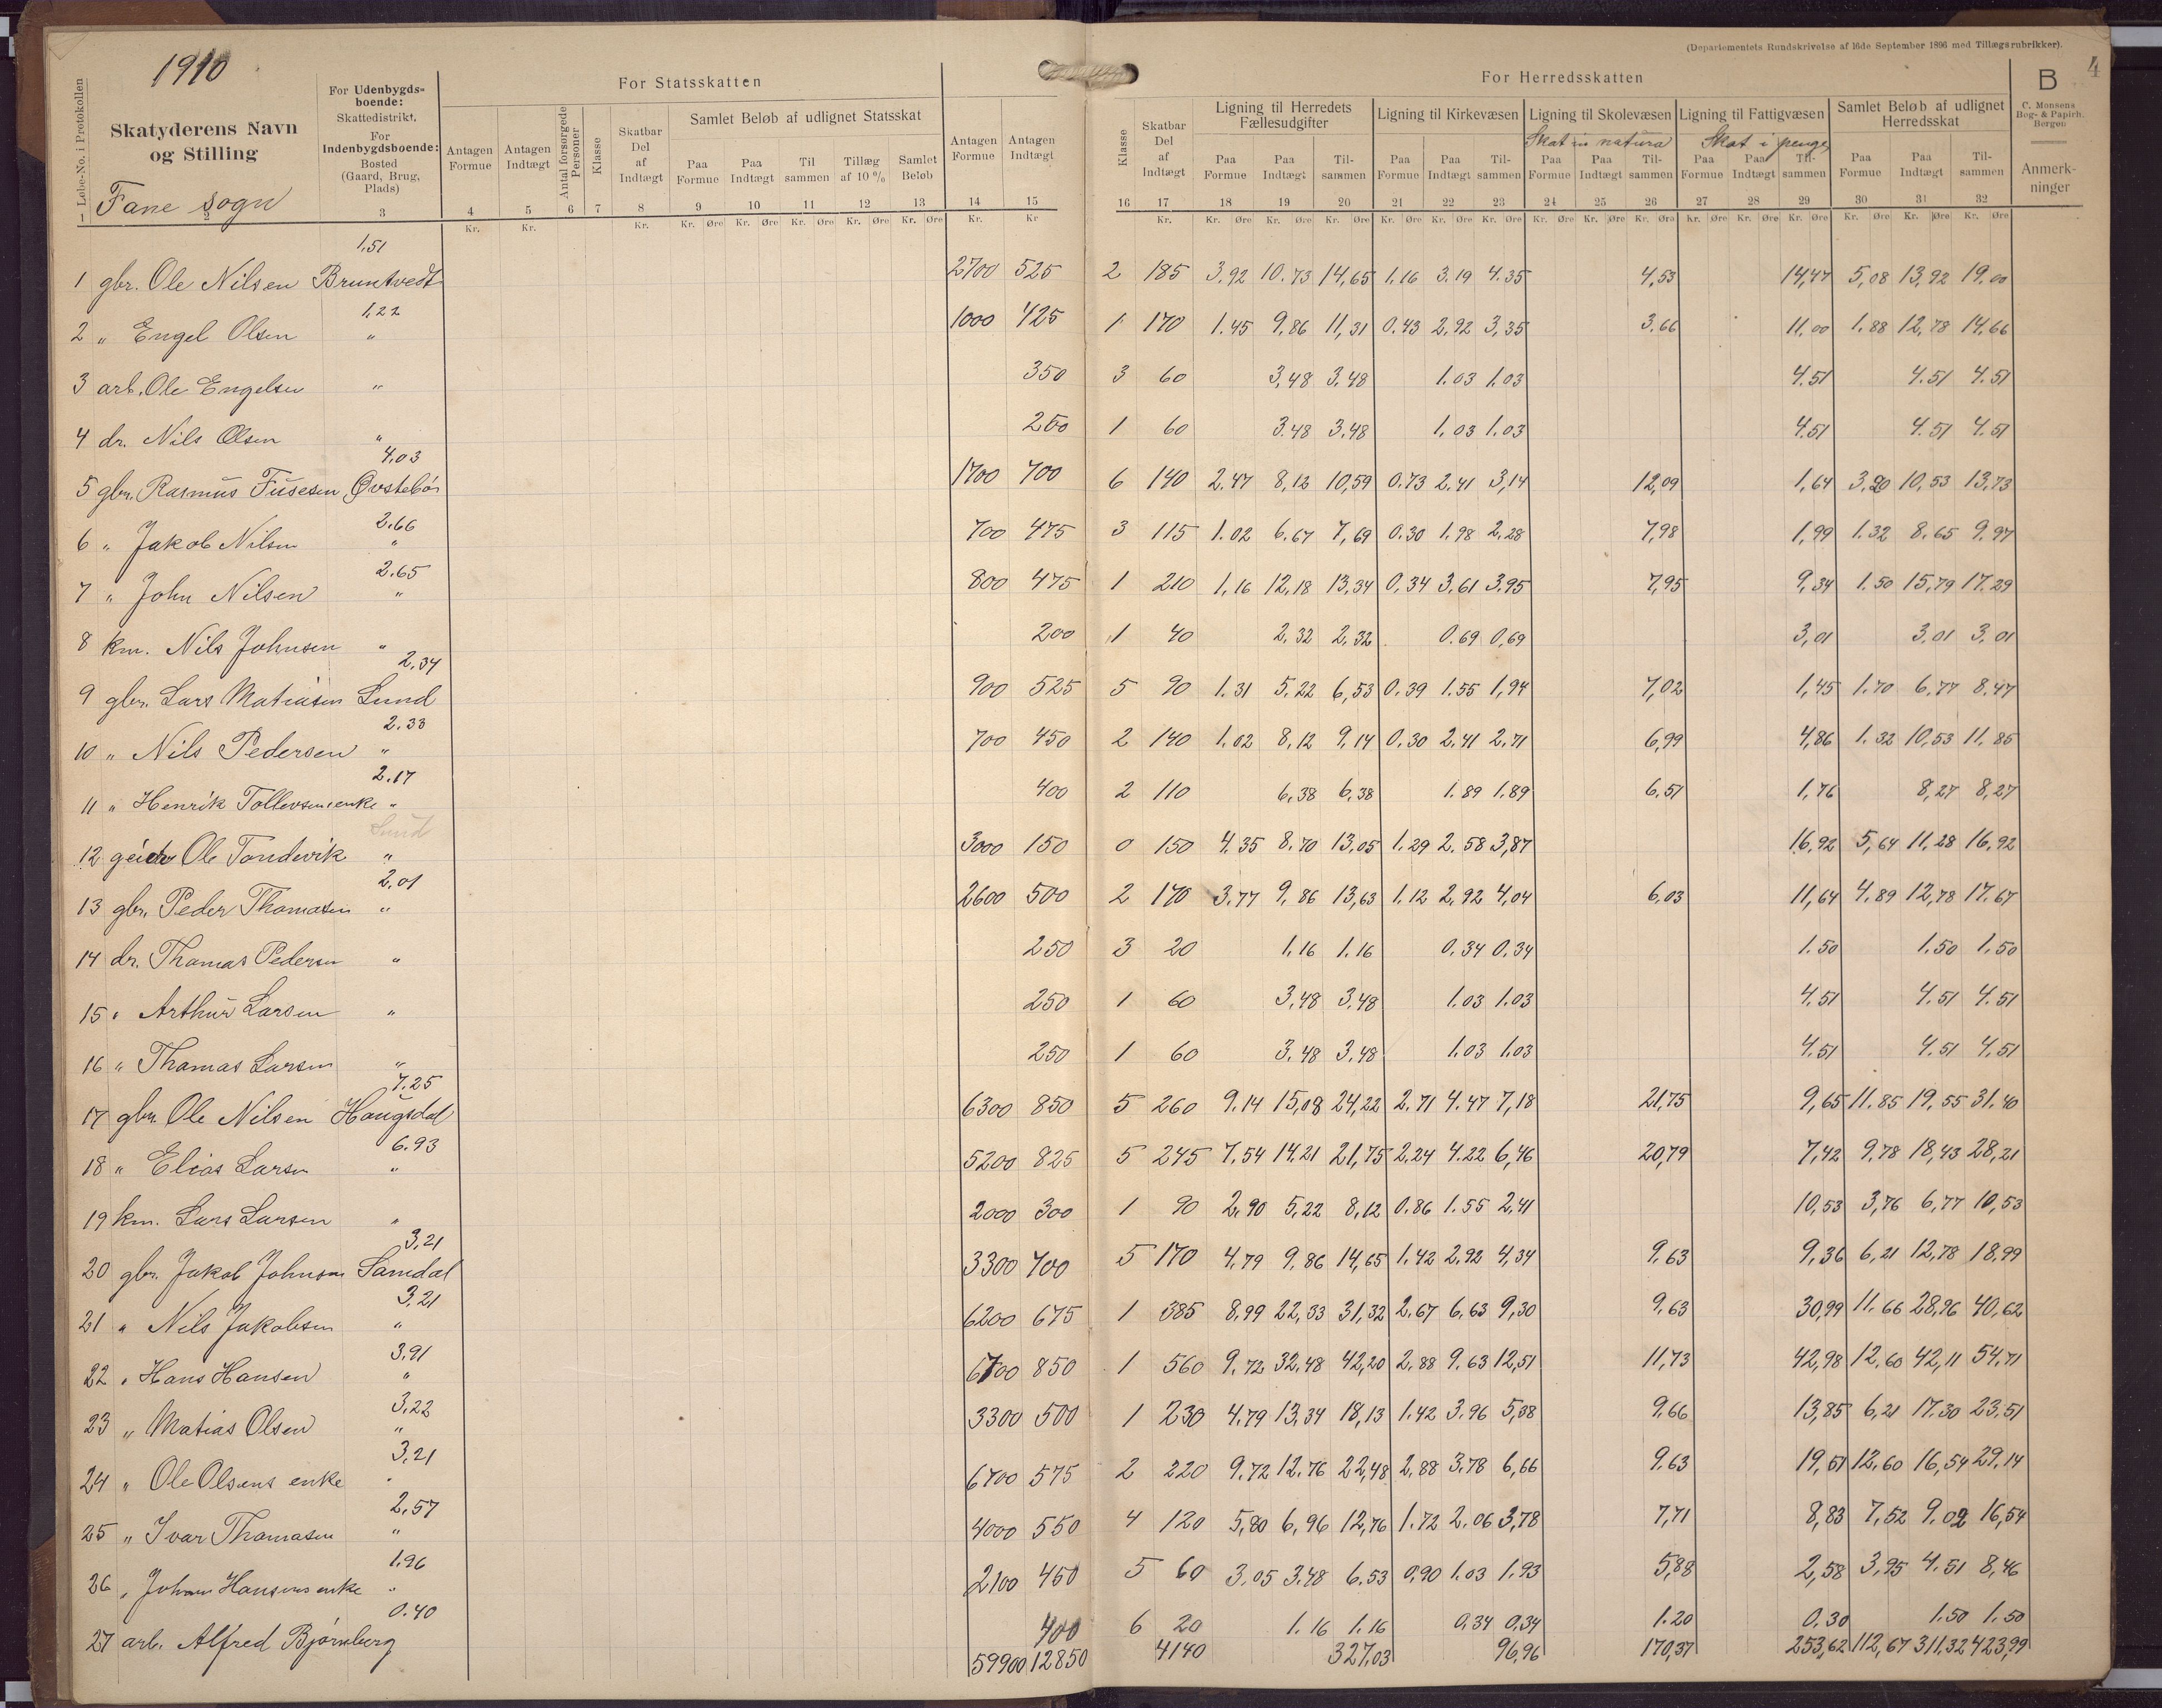 (Departementets Rundskrivelse af 16de September 1896 med Tillægsrubrikker).
4
1910
For Statsskatten
For Herredsskatten
B
C. Monsens Bog- & Papirh. Bergen
Anmerkninger
Løbe-No. i Protokollen
Skatyderens Navn og Stilling
Fane sogn
For Udenbygdsboende: Skattedistrikt.
For Indenbygdsboende: Bosted (Gaard, Brug, Plads)
Antagen Formue
Antagen Indtægt
Antal forsørgede Personer
Klasse
Skatbar Del af Indtægt
Samlet Beløb af udlignet Statsskat
Paa Formue
Paa Indtægt
Til sammen
Tillæg af 10 %
Samlet Beløb
Antagen Formue
Antagen Indtægt
Klasse
Skatbar Del af Indtægt
Ligning til Herredets Fællesudgifter
Paa Formue
Paa Indtægt
Til-sammen
Ligning til Kirkevæsen
Paa Formue
Paa Indtægt
Til-sammen
Ligning til Skolevæsen
Skat in natura
Paa Formue
Paa Indtægt
Til-sammen
Ligning til Fattigvæsen
Skat i penger
Paa Formue
Paa Indtægt
Til-sammen
Samlet Beløb af udlignet Herredsskat
Paa Formue
Paa Indtægt
Til-sammen
1 2 3 4 5 6 7 8 9 10 11 12 13 14 15 16 17 18 19 20 21 22 23 24 25 26 27 28 29 30 31 32
Kr. Kr. Kr. Kr. Øre Kr. Øre Kr. Øre Kr. Øre Kr. Øre Kr. Kr Kr. Kr. Øre Kr. Øre Kr. Øre Kr. Øre Kr. Øre Kr. Øre Kr. Øre Kr. Øre Kr. Øre Kr. Øre Kr. Øre Kr. Øre Kr. Øre Kr. Øre Kr. Øre
1,51
1 gbr. Ole Nilsen Bruntvedt 2700 525 2 185 3.92 10.73 14,65 1.16 3.19 4.35 4,53 14,47 5,08 13,92 19.00
1,22
2 " Engel Olsen " 1000 425 1 170 1.45 9.86 11,31 0.43 2,92 3,35 3.66 11.00 1.88 12,78 14,66
3 arb. Ole Engelsen " 350 3 60 3,48 3.48 1.03 1.03 4.51 4.51 4.51
4 dr. Nils Olsen " 250 1 60 3.48 3.48 1,03 1.03 4.51 4.51 4.51
4,03
5 gbr. Rasmus Fusesen Øvstebø 1700 700 6 140 2.47 8,12 10,59 0.73 2.41 3,14 12,09 1,64 3,20 10,53 13,73
2.66
6 " Jakob Nilsen " 700 475 3 115 1.02 6.67 7,69 0.30 1.98 2,28 7,98 1,99 1.32 8.65 9.97
2.65
7 " John Nilsen " 800 475 1 210 1,16 12,18 13,34 0,34 3.61 3.95 7,95 9,34 1.50 15,79 17.29
8 km. Nils Johnsen " 200 1 40 2,32 2,32 0.69 0,69 3,01 3,01 3.01
2.34
9 gbr. Lars Matiasen Lund 900 525 5 90 1.31 5.22 6,53 0.39 1.55 1,94 7,02 1,45 1.70 6.77 8.47
2.33
10 " Nils Pedersen " 700 450 2 140 1.02 8,12 9,14 0.30 2.41 2.71 6,99 4,86 1.32 10,53 11,85
2.17
11 " Henrik Tollevsens enke " 400 2 110 6,38 6,38 1.89 1.89 6.51 1,76 8,27 8,27
Lund
12 Ole Tondevik " 3000 150 0 150 4.35 8.70 13.05 1.29 2.58 3,87 16,92 5,64 11.28 16,92
2.01
13 gbr. Peder Thomasen " 2600 500 2 170 3.77 9,86 13,63 1.12 2,92 4,04 6,03 11,64 4.89 12,78 17.67
14 dr. Thomas Pedersen " 250 3 20 1,16 1.16 0,34 0,34 1.50 1.50 1,50
15 " Arthur Larsen " 250 1 60 3,48 3,48 1.03 1.03 4,51 4.51 4.51
16 " Thomas Larsen " 250 1 60 3,48 3.48 1.03 1.03 4.51 4.51 4.51
7.25
17 gbr. Ole Nilsen Haugsdal 6300 850 5 260 9.14 15,08 24,22 2.71 4.47 7,18 21,75 9,65 11.85 19,55 31.40
6.93
18 " Elias Larsen " 5200 825 5 245 7,54 14.21 21,75 2.24 4.22 6,46 20,79 7,42 9.78 18,43 28,21
19 km. Lars Larsen " 2000 300 1 90 2.90 5,22 8,12 0.86 1.55 2,41 10,53 3,76 6,77 10,53
3,21
20 gbr. Jakob Johnsen Samdal 3300 700 5 170 4,79 9.86 14,65 1.42 2.92 4,34 9,63 9,36 6,21 12,78 18.99
3,21
21 " Nils Jakobsen " 6200 675 1 385 8,99 22,33 31,32 2,67 6,63 9,30 9,63 30,99 11.66 28,96 40,62
3,91
22 " Hans Hansen " 6700 850 1 560 9,72 32,48 42,20 2,88 9,63 12,51 11,73 42,98 12,60 42,11 54,71
3,22
23 " Matias Olsen " 3300 500 1 230 4.79 13,34 18,13 1.42 3,96 5,38 9,66 13,85 6,21 17.30 23,51
3,21
24 " Ole Olsens enke " 6700 575 2 220 9.72 12.76 22,48 2,88 3.78 6,66 9,63 19,51 12,60 16,54 29,14
2,57
25 " Ivar Thomasen " 4000 550 4 120 5,80 6,96 12,76 1.72 2.06 3,78 7,71 8,83 7,52 9,02 16,54
1.96
26 " Johan Hansens enke " 2100 450 5 60 3.05 3.48 6.53 0,90 1.03 1.93 5,88 2,58 3,95 4.51 8,46
0.40
27 arb. Alfred Bjørnberg 400 6 20 1.16 1.16 0,34 0,34 1.20 0.30 1.50 1.50
59900 12850 4140 327,03 96,96 170,37 253,62 112,67 311,32 423,99